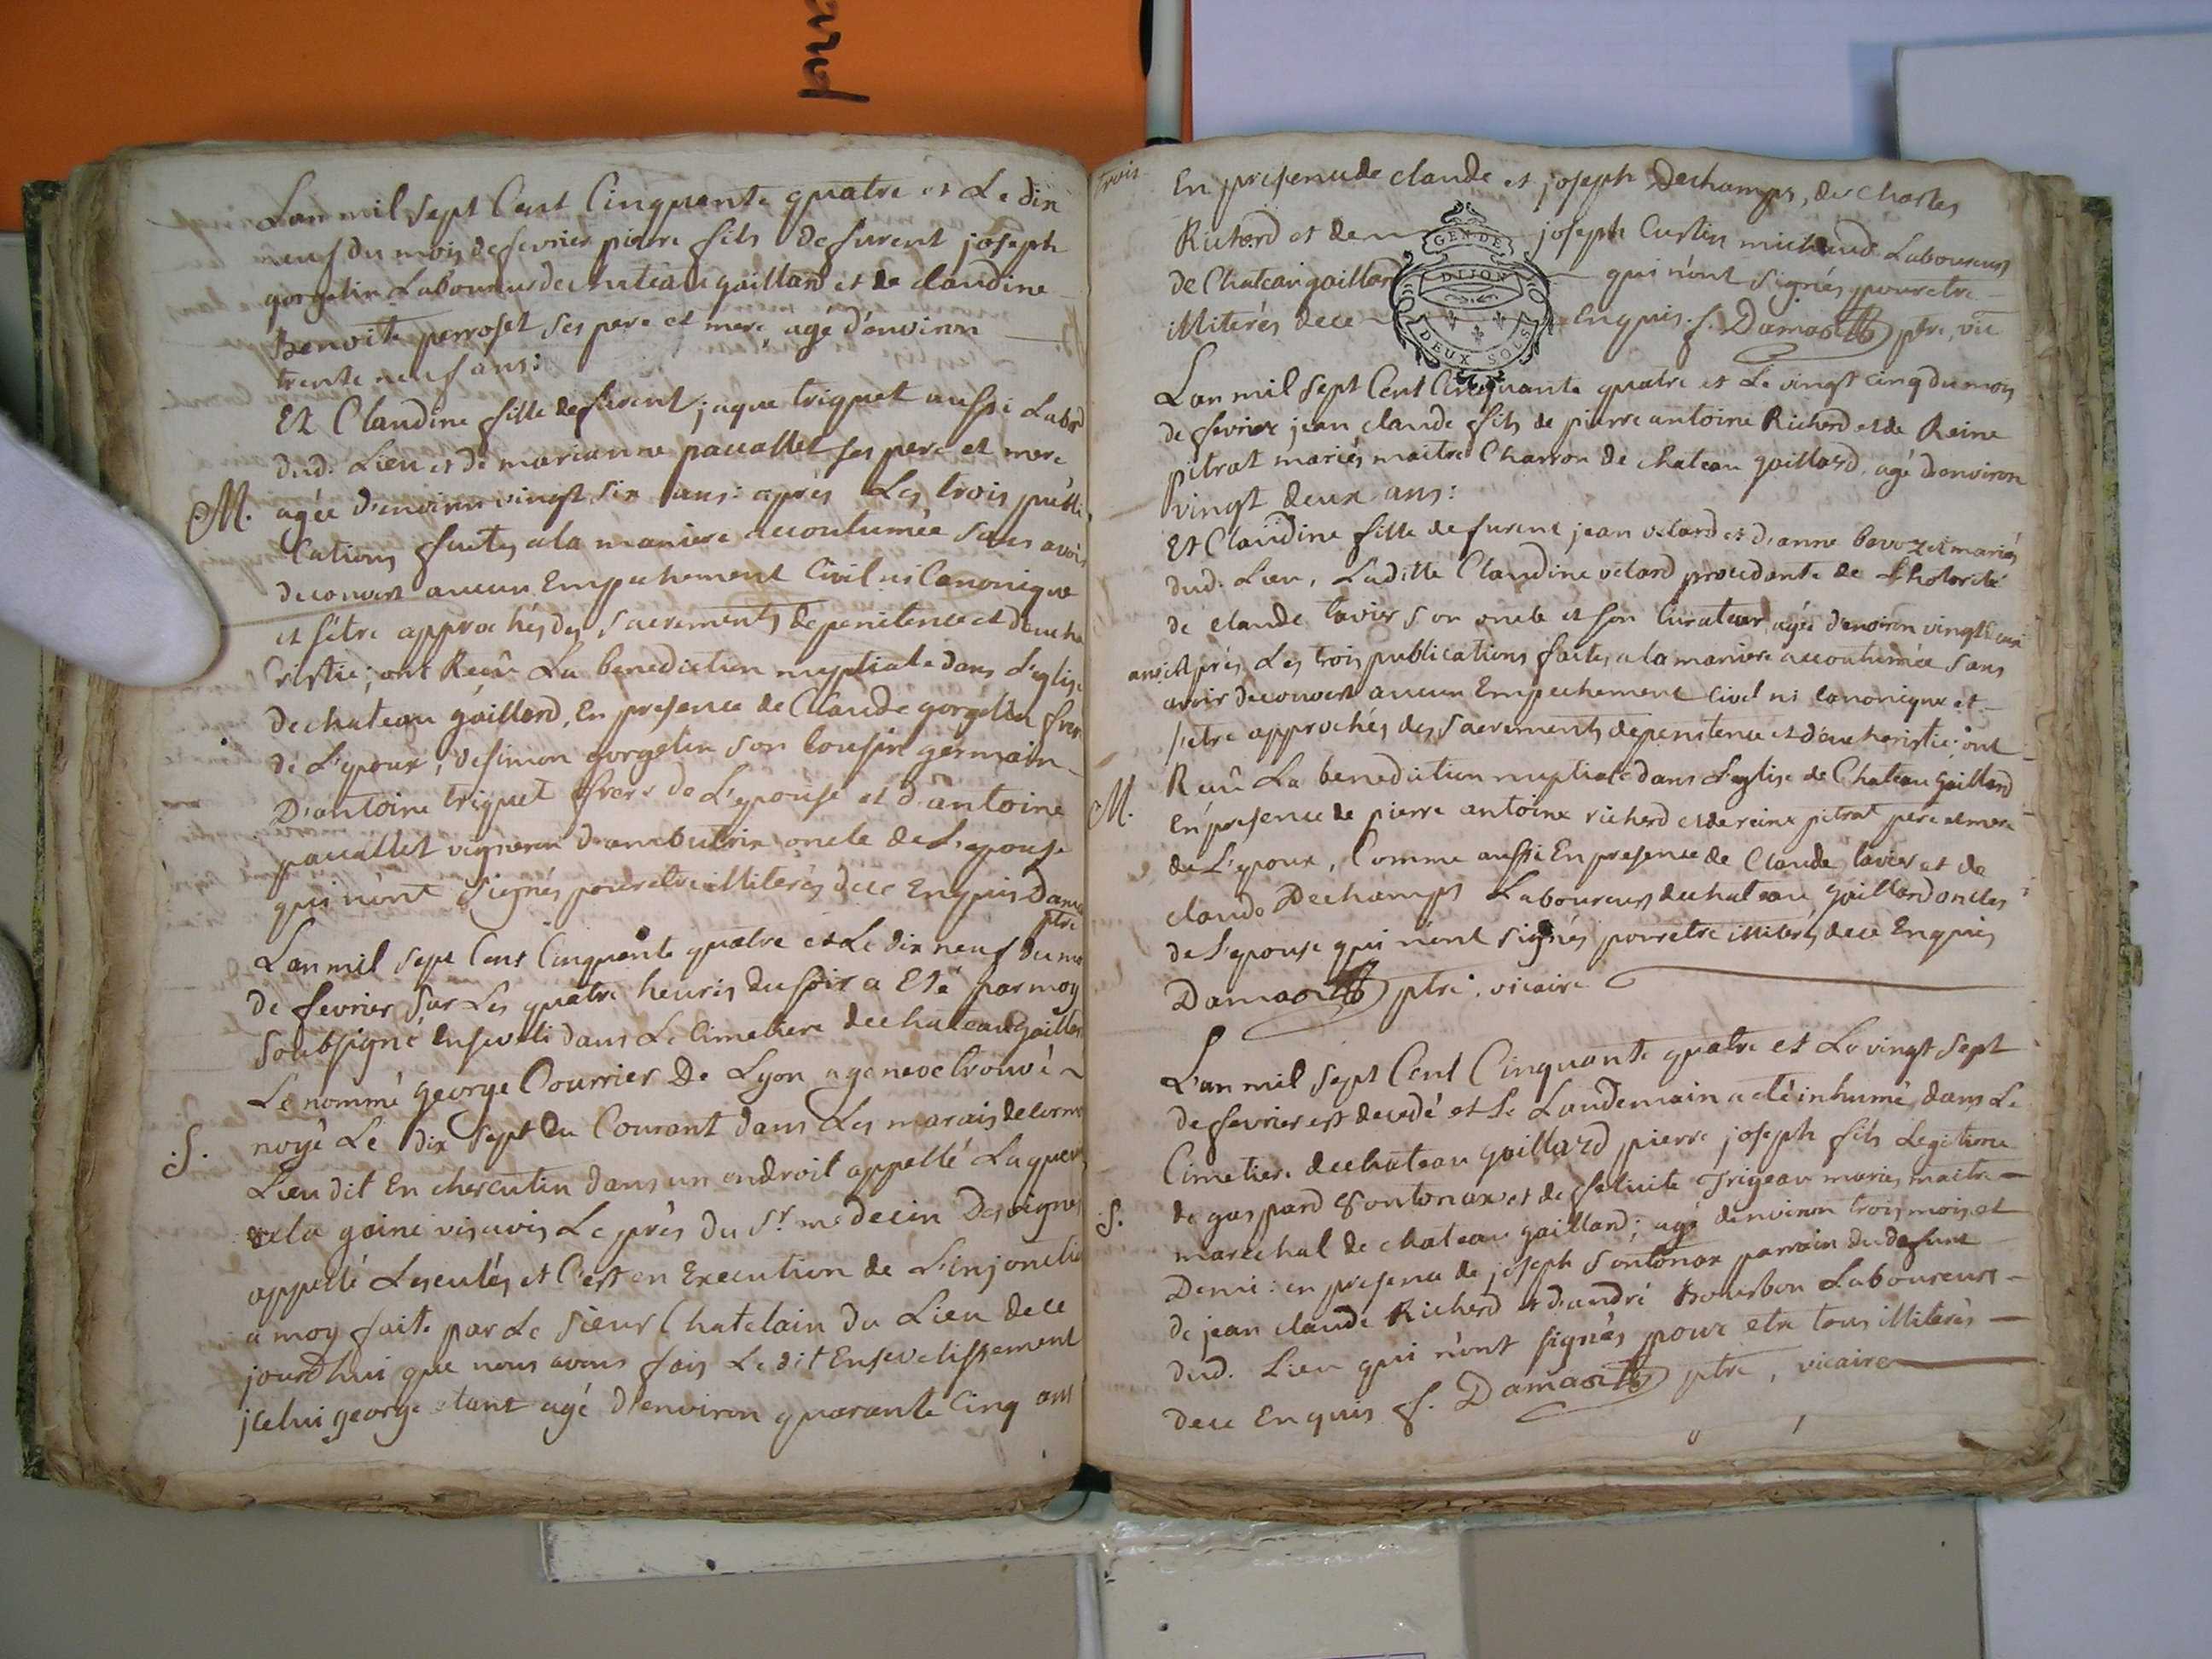 L'an mil sept Cent Cinquante quatre et Le dix
neuf du mois de fevrier pierre fils defurent joseph
gorgelin Laboureur de chateau gaillard et de claudine
Benoite perroset ses pere et mere agé d'environ
trente neuf ans:
Et Claudine fille defurent jaque triquet aussi Labr
dud. Lieu et de marianne pacallet ses pere et mere
M. agée d'environ vingt six ans: après Les trois publi
Cations faites a la maniere accoutumée sans avoir
decouvert aucun Empechement Civil ni Canonique
et s'être approchés des sacrements de penitence et d'eucha
ristie; ont Reçu La benediction nuptiale dans L'eglise
de chateau gaillard, En presence de Claude gorgelin frere
de L'epoux; de simon gorgelin son Cousin germain
D'antoine triquet frere de L'epouse et d'antoine
pacallet vigneron d'ambutrix oncle de L'epouse
qui n'ont signés pour etre illiterés de ce Enquis Dama
ptre
L'an mil sept Cent Cinquante quatre et Le dix neuf du mo
de fevrier sur Les quatre heures du soir a Eté par moy
soubsigné Enseveli dans Le Cimetiere de chateau gaillar
Le nommé george Courrier De Lyon a geneve trouvé
S. noyé Le dix sept du Courant dans Les marais de
Lieu dit En chercutin dans un endroit appellé
de la goine vis avis Le près du Sr. medecin Desvignes
appellé Lesculés et C'est en Execution de L'injonctio
a moy faite par Le sieur Chatelain du Lieu de ce
jourd'hui que nous avons fais Le dit Ensevelissement
jcelui george etant agé d'environ quarante Cinq ans
trois
En presence de claude et joseph Dechamps, de Charles
Richerd et de joseph Custin michaud Laboureurs
de Chateau gaillard qui n'ont signés pour etre
illiterés de ce Enquis. f. Damas ptre, vic
GEN DE
DIJON
DEUX SOLS
L'an mil sept Cent Cinquante quatre et Le vingt cinq du mois
de fevrier jean claude fils de pierre antoine Richerd et de Reine
pitrat mariés maitre Charron de chateau gaillard agé d'environ
vingt deux ans:
Et Claudine fille defurent jean velard et d'anne bavozet mariés
dud. Lieu, Laditte Claudine velard procedante de L'hotorité
de claude tavier son oncle et son Curateur agée d'environ vingt
ans: après Les trois publications faites a la maniere accoutumée sans
avoir decouvert aucun Empechement Civil ni Canonique et
s'etre approchés des sacrements de penitence et d'eucheristie: ont
M. Reçu La benediction nuptiale dans L'eglise de Chateau gaillard
En presence de pierre antoine richerd et de reine pitrat pere et mere
de L'epoux, Comme aussi En presence de Claude tavier et de
claude Dechamps Laboureurs de chateau gaillard oncles
de L'epouse qui n'ont signés pour etre illiterés de ce Enquis
Damas ptre, vicaire
L'an mil sept Cent Cinquante quatre et Le vingt sept
de fevrier est decedé et Le Landemain a eté inhumé dans Le
Cimetiere de chateau gaillard pierre joseph fils Legitime
S. de gaspard Sontonax et de felicité Trigeau mariés maitre
marechal de chateau gaillard; agé d'environ trois mois et
Demi: en presence de joseph Sontonax parrain du defunt
de jean claude Richerd et d'andré Bourbon Laboureurs
dud. Lieu qui n'ont signés pour etre tous illiterés
de ce Enquis f. Damas ptre, vicaire